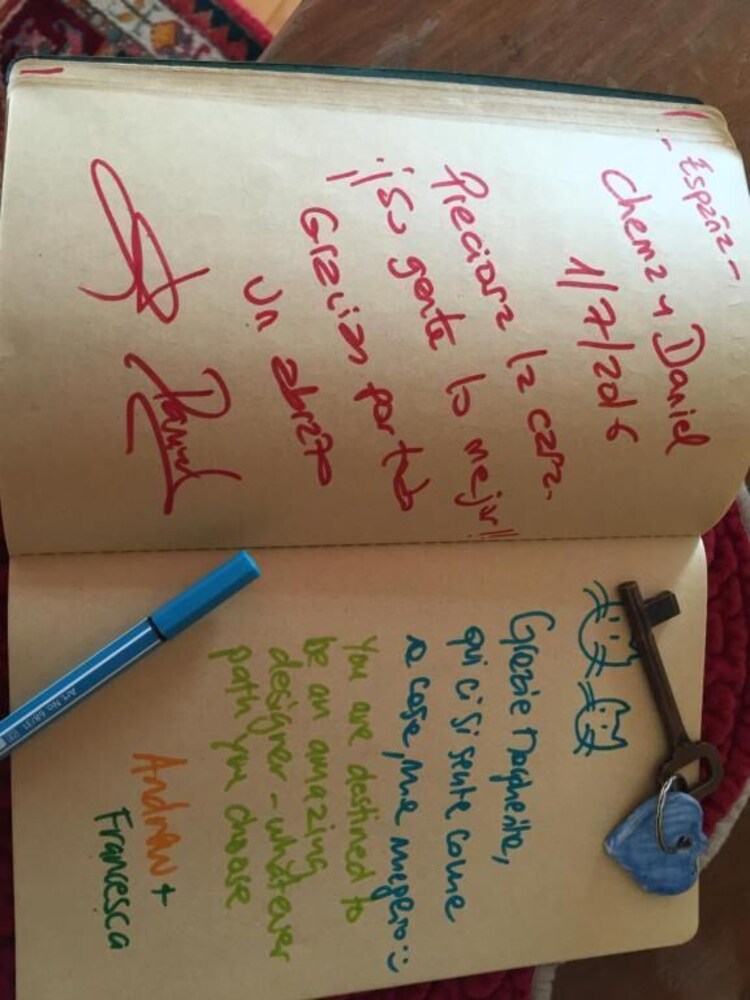 - España -
Chema y Daniel
1/7/2016
Preciosa la casa.
¡¡Su gente lo mejor!!
Gracias por todo
Un abrazo
Daniel
Grazie Margherita,
qui ci si sente come
a casa, ma meglio :-)
You are destined to
be an amazing
designer - whatever
path you choose
Andrew +
Francesca
Art. No 68/31